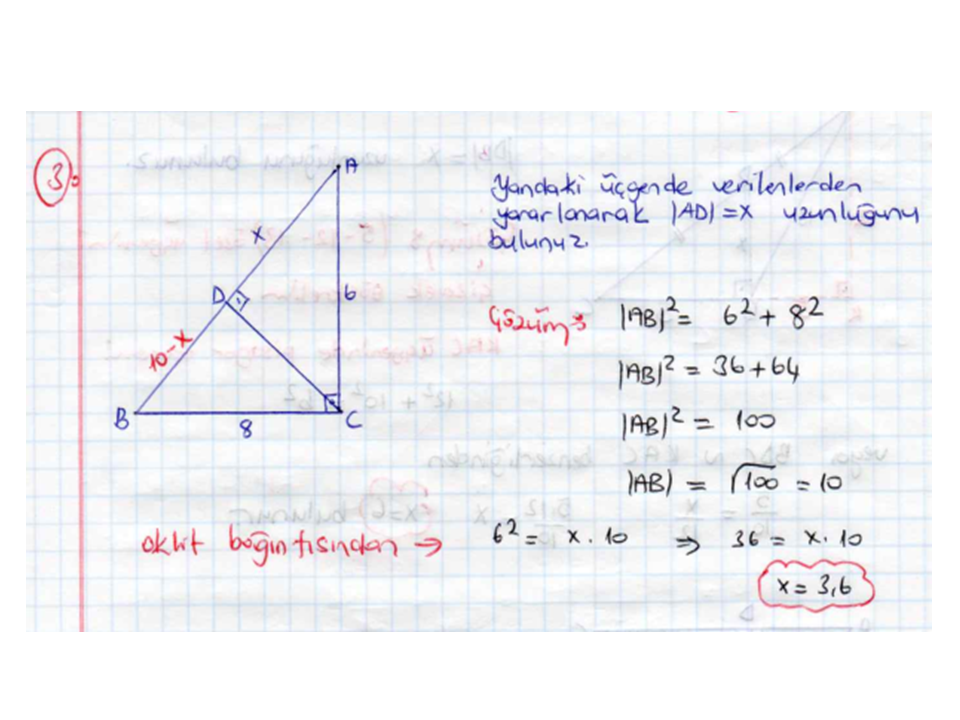 3:
A
x
D
6
10-x
B
8
C
Yandaki üçgende verilenlerden
yararlanarak |AD| = x uzunluğunu
bulunuz.
Çözüm:
|AB|² = 6² + 8²
|AB|² = 36 + 64
|AB|² = 100
|AB| = √100 = 10
öklit bağıntısından → 6² = x . 10 ⇒ 36 = x . 10
x = 3,6